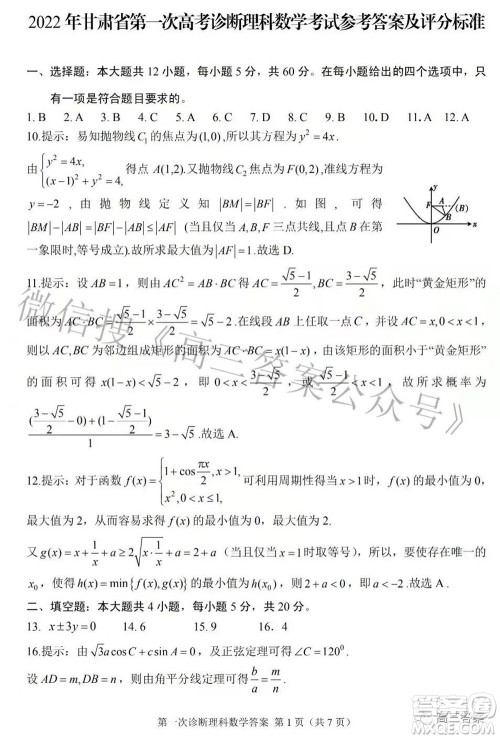 2022 年甘肃省第一次高考诊断理科数学考试参考答案及评分标准
一、选择题：本大题共 12 小题，每小题 5 分，共 60 分。在每小题给出的四个选项中，只
有一项是符合题目要求的。
1. B 2. D 3. B 4. D 5. C 6. C 7. D 8. B 9. B 10. D 11. A 12. A
10.提示：易知抛物线 C₁ 的焦点为 (1,0), 所以其方程为 y² = 4x.
由 { y² = 4x, (x−1)² + y² = 4 得点 A(1,2). 又抛物线 C₂ 焦点为 F(0,2), 准线方程为
y = −2 , 由抛物线定义知 |BM| = |BF| . 如图, 可得
|BM| − |AB| = |BF| − |AB| ≤ |AF| (当且仅当 A,B,F 三点共线, 且点 B 在第
一象限时, 等号成立). 故所求最大值为 |AF| = 1. 故选 D.
y
F A
B
O x
M
11.提示：设 AB = 1, 则由 AC² = AB · BC 得 AC = (√5−1)/2, BC = (3−√5)/2, 此时“黄金矩形”的
面积为 AC · BC = (√5−1)/2 × (3−√5)/2 = √5 − 2. 在线段 AB 上任取一点 C, 设 AC = x, 0 < x < 1,
则以 AC, BC 为邻边组成矩形的面积为 AC · BC = x(1−x), 由该矩形的面积小于“黄金矩形”
的面积得 x(1−x) < √5 − 2, 即 0 < x < (3−√5)/2 或 (√5−1)/2 < x < 1, 故所求概率为
(((3−√5)/2 − 0) + (1 − (√5−1)/2))/1 = 3 − √5 .故选 A.
12.提示：对于函数 f(x) = { 1 + cos(πx/2), x > 1, x², 0 < x ≤ 1, 可利用周期性得当 x > 1 时, f(x) 的最小值为 0,
最大值为 2, 从而容易求出, f(x) 的最小值为 0, 最大值为 2.
又 g(x) = x + 1/x + a ≥ 2√(x · 1/x) + a = 2 + a (当且仅当 x = 1 时取等号), 所以, 要使存在唯一的
x₀, 使得 h(x) = min{f(x), g(x)} 的最小值为 h(x₀), 则 2 + a < 0, 即 a < −2. 故选 A.
二、填空题：本大题共 4 小题，每小题 5 分，共 20 分。
13. x ± 3y = 0 14. 9 15. 9 16. 4
16.提示：由 √3a cos C + c sin A = 0, 及正弦定理可得 ∠C = 120⁰.
设 AD = m, BD = n, 则由角平分线定理可得 b/a = m/n.
第一次诊断理科数学答案 第 1 页（共 7 页）
微信搜《高三答案公众号》
高三答案